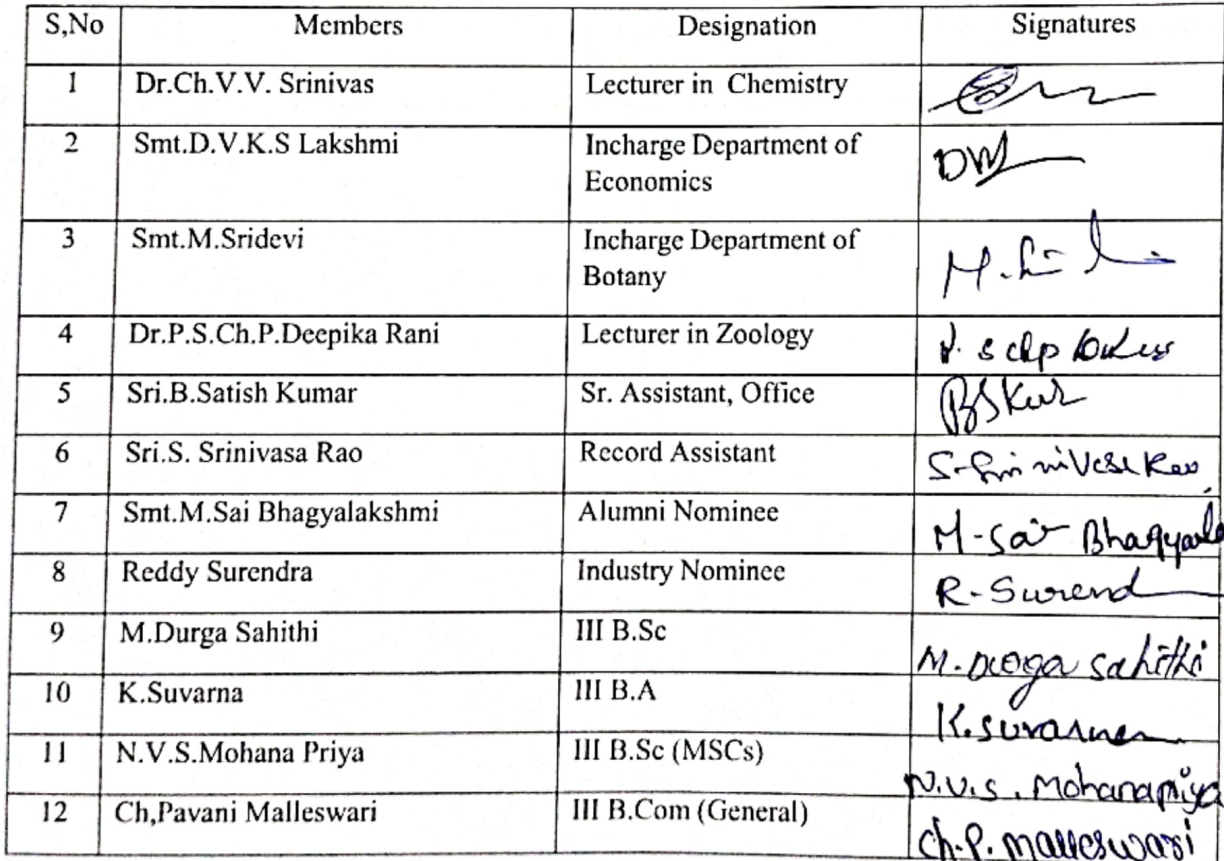 S,No Members Designation Signatures
1 Dr.Ch.V.V. Srinivas Lecturer in Chemistry
2 Smt.D.V.K.S Lakshmi Incharge Department of
Economics
3 Smt.M.Sridevi Incharge Department of
Botany
4 Dr.P.S.Ch.P.Deepika Rani Lecturer in Zoology
5 Sri.B.Satish Kumar Sr. Assistant, Office
6 Sri.S. Srinivasa Rao Record Assistant
7 Smt.M.Sai Bhagyalakshmi Alumni Nominee M-Sai
8 Reddy Surendra Industry Nominee R-Surend
9 M.Durga Sahithi III B.Sc M. Durga Sahithi
10 K.Suvarna III B.A K.Suvarna
11 N.V.S.Mohana Priya III B.Sc (MSCs) N.V.S. Mohanapriya
12 Ch,Pavani Malleswari III B.Com (General) Ch.P. Malleswari